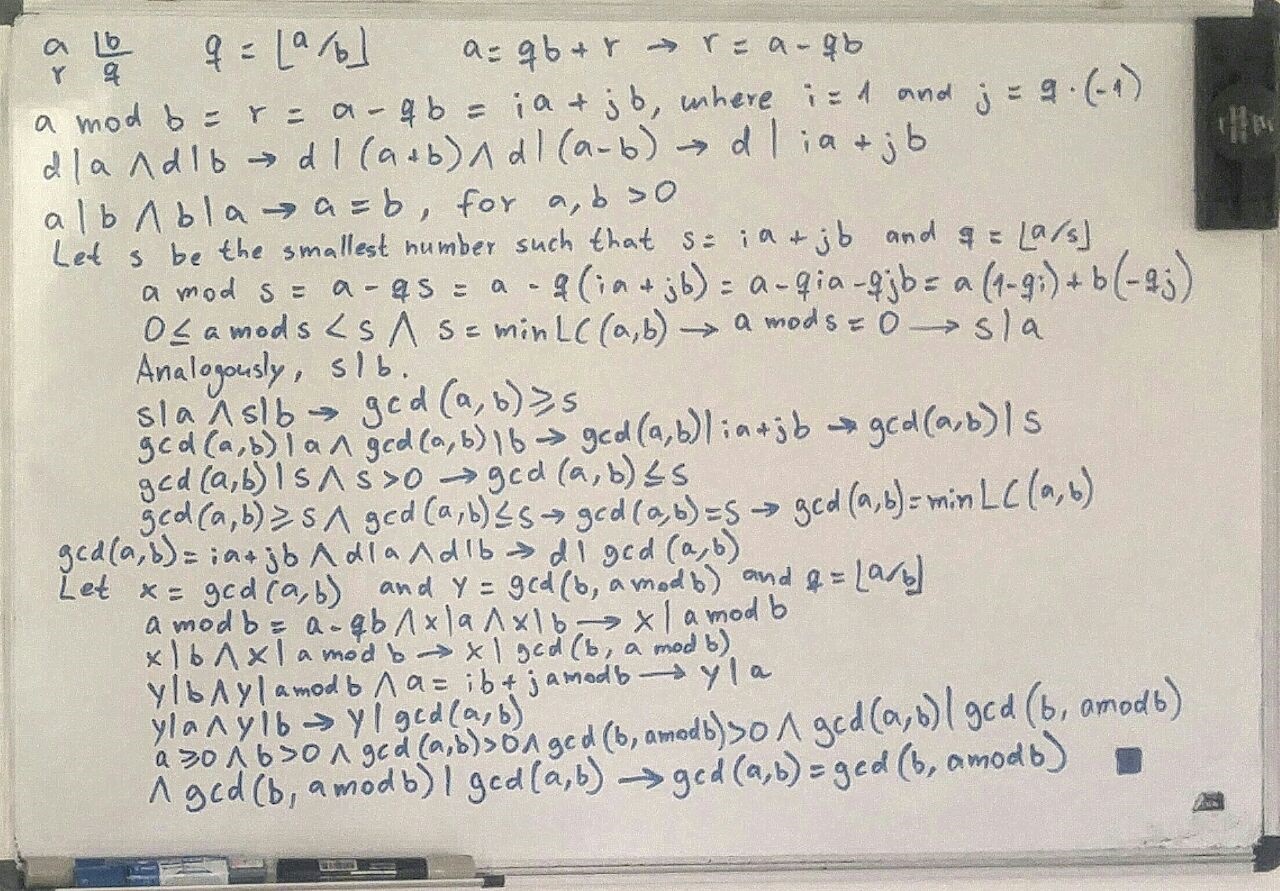 a |b q = ⌊a/b⌋ a = qb + r → r = a - qb
r q
a mod b = r = a - qb = ia + jb, where i = 1 and j = q·(-1)
d|a ∧ d|b → d|(a+b) ∧ d|(a-b) → d | ia + jb
a|b ∧ b|a → a = b, for a, b > 0
Let s be the smallest number such that s = ia + jb and q = ⌊a/s⌋
a mod s = a - qs = a - q(ia + jb) = a - qia - qjb = a(1-qi) + b(-qj)
0 ≤ a mod s < s ∧ s = min LC(a,b) → a mod s = 0 → s|a
Analogously, s|b.
s|a ∧ s|b → gcd(a,b) ⩾ s
gcd(a,b)|a ∧ gcd(a,b)|b → gcd(a,b)|ia+jb → gcd(a,b)|s
gcd(a,b)|s ∧ s>0 → gcd(a,b) ≤ s
gcd(a,b) ⩾ s ∧ gcd(a,b) ≤ s → gcd(a,b) = s → gcd(a,b) = min LC(a,b)
gcd(a,b) = ia+jb ∧ d|a ∧ d|b → d | gcd(a,b)
Let x = gcd(a,b) and y = gcd(b, a mod b) and q = ⌊a/b⌋
a mod b = a - qb ∧ x|a ∧ x|b → x | a mod b
x|b ∧ x|a mod b → x | gcd(b, a mod b)
y|b ∧ y|a mod b ∧ a = ib + j a mod b → y | a
y|a ∧ y|b → y | gcd(a,b)
a ⩾ 0 ∧ b > 0 ∧ gcd(a,b) > 0 ∧ gcd(b, a mod b) > 0 ∧ gcd(a,b) | gcd(b, a mod b)
∧ gcd(b, a mod b) | gcd(a,b) → gcd(a,b) = gcd(b, a mod b) ■